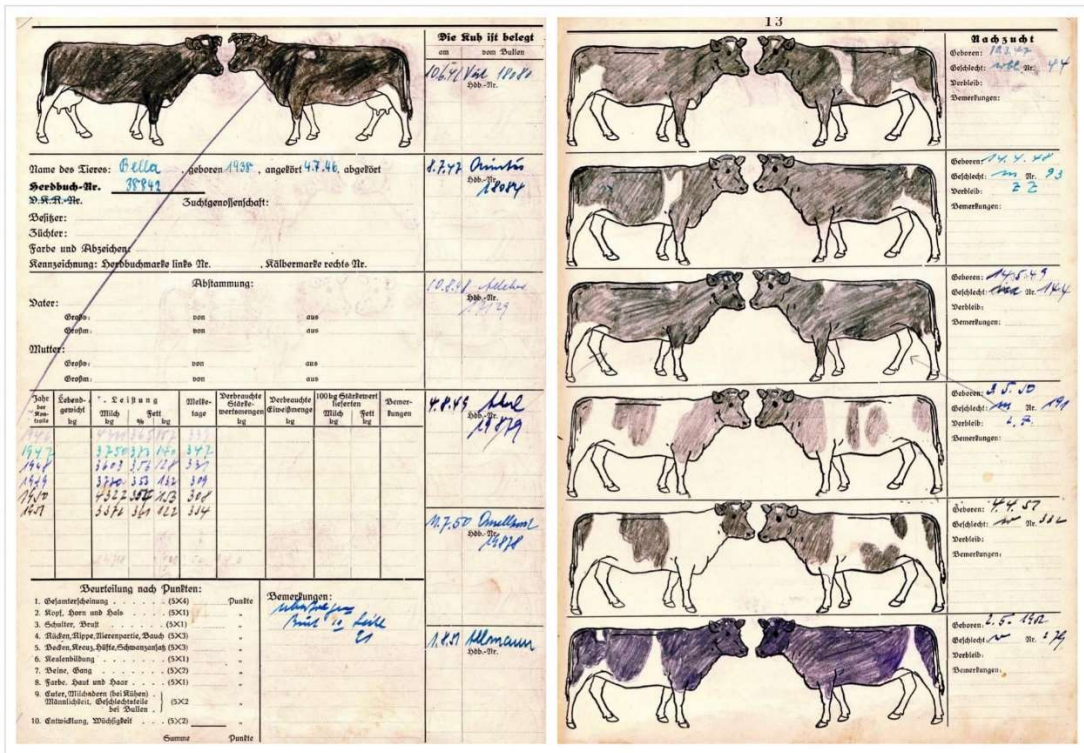 Die Kuh ist belegt
am vom Bullen
10.6.46 18080
Hdb.-Nr.
Name des Tieres: Bella, geboren 1938, angekört 4.7.46, abgekört
Herdbuch-Nr. 38842
V.K.K.-Nr. Zuchtgenossenschaft:
Besitzer:
Züchter:
Farbe und Abzeichen:
Kennzeichnung: Herdbuchmarke links Nr. , Kälbermarke rechts Nr.
8.7.47 Quintus
Hdb.-Nr.
18084
Abstammung:
Vater:
Großv: von aus
Großm: von aus
Mutter:
Großv: von aus
Großm: von aus
10.8.48
Hdb.-Nr.
19129
Jahr der Kontrolle
Lebendgewicht kg
Leistung
Milch kg
Fett % kg
Melketage
Verbrauchte Stärkewertsmengen
Verbrauchte Eiweißmenge
100 kg Stärkewert lieferten
Milch kg
Fett kg
Bemerkungen
1946
1947 3750 140 347
1948 3603 3,56 128 321
1949 3780 3,53 132 309
1950 4327 153 308
1951 3376 3,61 122 334
4.8.49
Hdb.-Nr.
19879
11.7.50
Hdb.-Nr.
19878
Beurteilung nach Punkten:
1. Gesamterscheinung . . . . . (5X4) Punkte
2. Kopf, Horn und Hals . . . . (5X1) "
3. Schulter, Brust . . . . . (5X1) "
4. Rücken, Rippe, Nierenpartie, Bauch (5X3) "
5. Becken, Kreuz, Hüfte, Schwanzansatz (5X3) "
6. Keulenbildung . . . . . (5X1) "
7. Beine, Gang . . . . . (5X2) "
8. Farbe, Haut und Haar . . . . (5X1) "
9. Euter, Milchadern (bei Kühen)
Männlichkeit, Geschlechtsteile
bei Bullen . (5X2 "
10. Entwicklung, Wüchsigkeit . . . (5X2) "
Summe Punkte
Bemerkungen:
1.8.51 Allmann
Hdb.-Nr.
13
Nachzucht
Geboren: 18.3.47
Geschlecht: wbl Nr. 44
Verbleib:
Bemerkungen:
Geboren: 14.4.48
Geschlecht: m Nr. 93
Verbleib: ZZ
Bemerkungen:
Geboren: 14.5.49
Geschlecht: Nr. 144
Verbleib:
Bemerkungen:
Geboren: 3.5.50
Geschlecht: m Nr. 191
Verbleib:
Bemerkungen:
Geboren: 4.4.51
Geschlecht: w Nr. 332
Verbleib:
Bemerkungen:
Geboren: 2.5.1952
Geschlecht: w Nr. 379
Verbleib:
Bemerkungen: